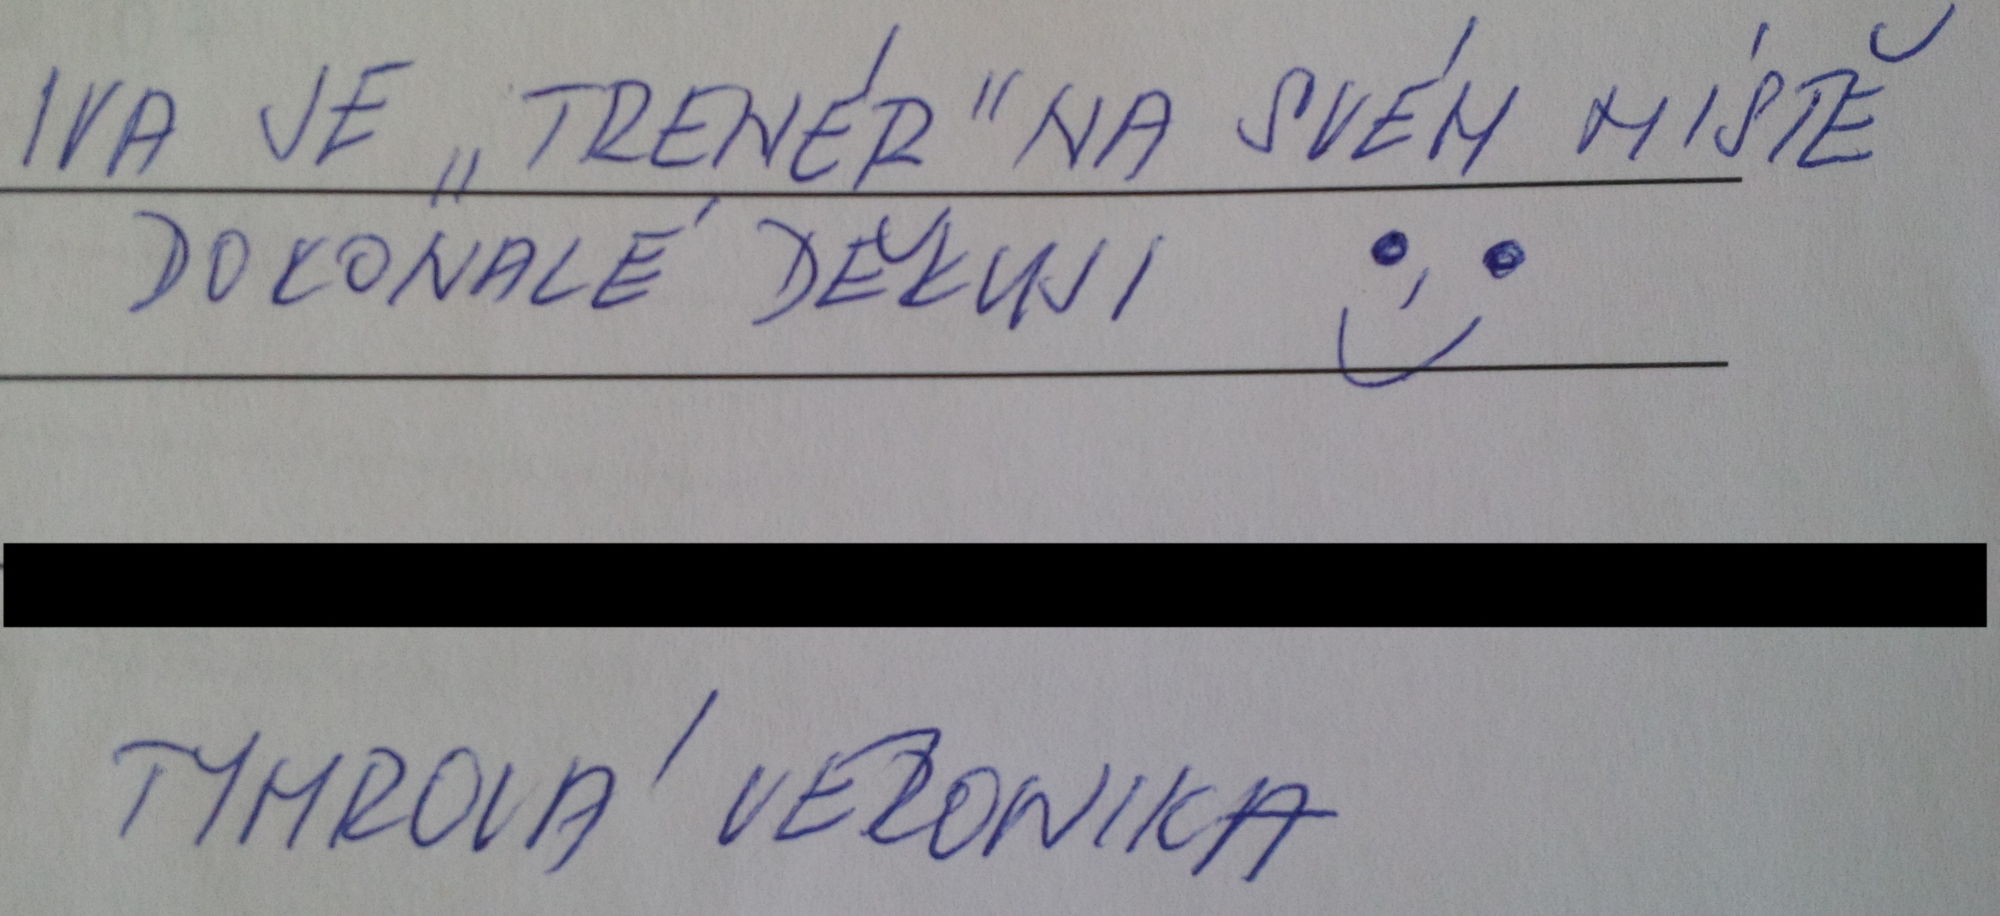 IVA JE „TRENÉR" NA SVÉM MÍSTĚ
DOKONALÉ DĚKUJI
TYMROVÁ VERONIKA